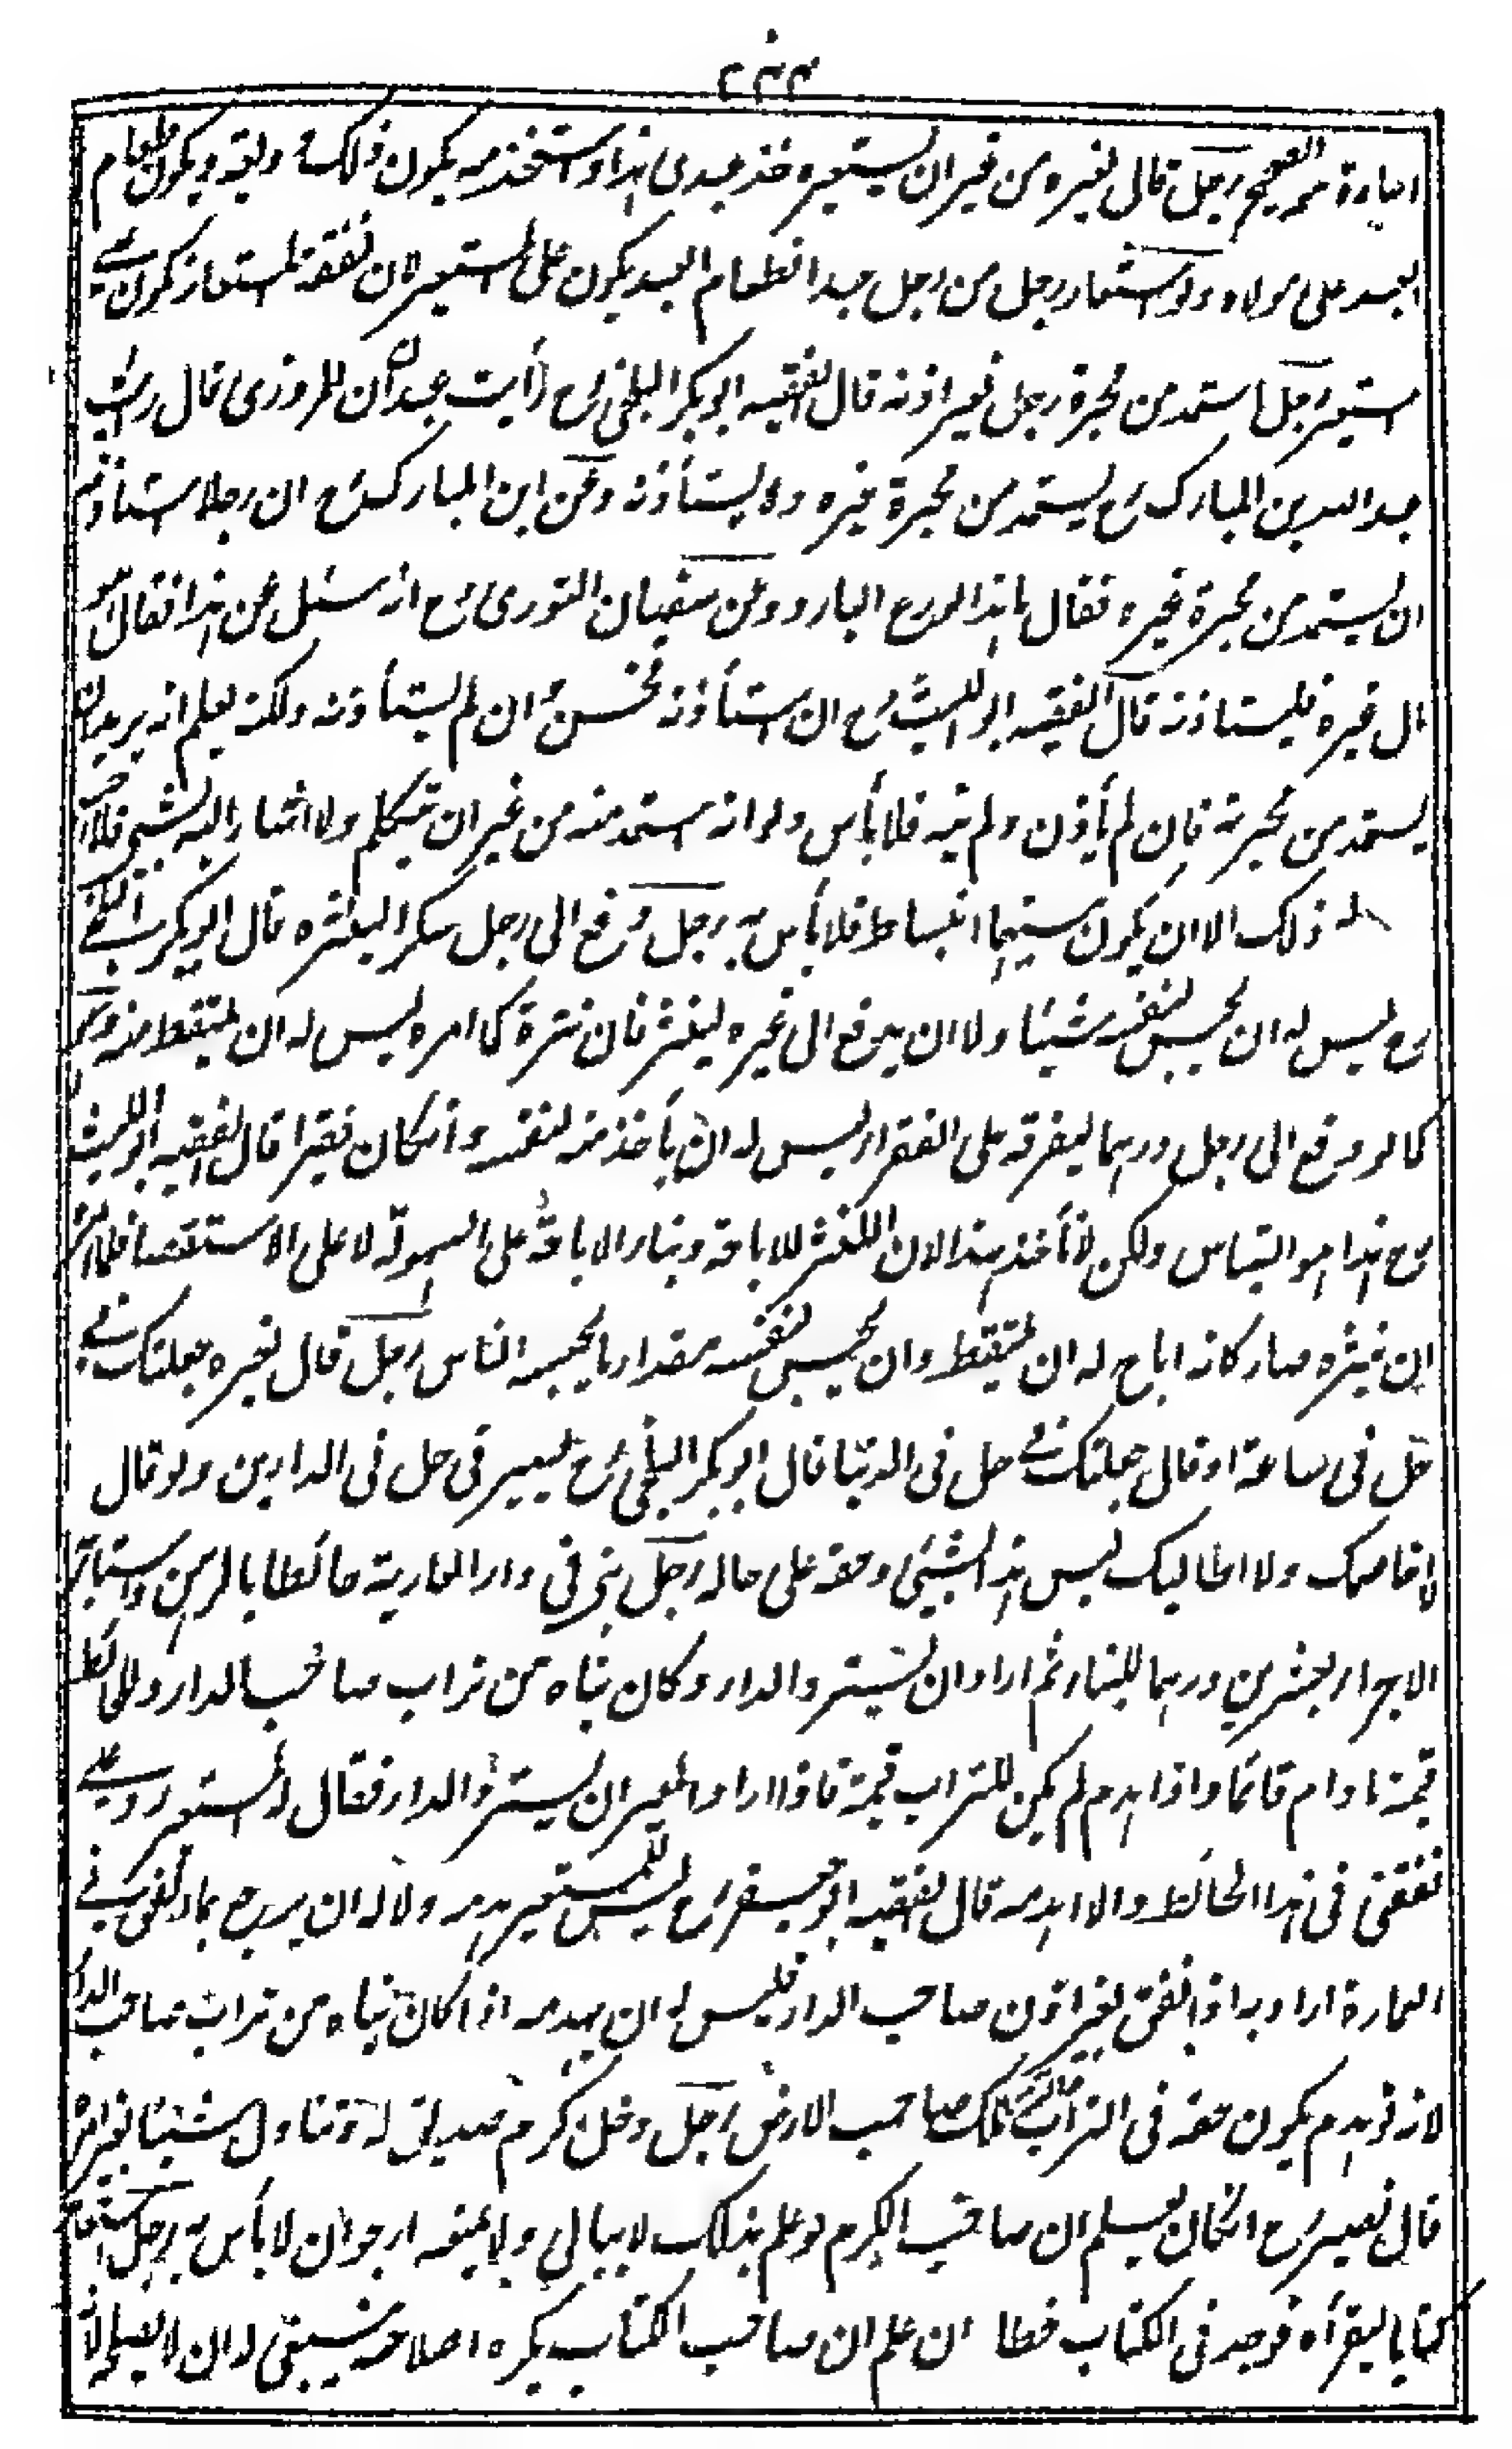 اجارة هو الصحيح رجل قال لغيره من غير ان يستعيره خذ عبدى هذا واستخدمه يكون ذلك وديعة ويكون طعام
العبد على مولاه ولو استعار رجل من رجل عبدا فطعام العبد يكون على المستعير لان نفقة المستعار تكون على
المستعير رجل استمد من محبرة رجل بغير اذنه قال الفقيه ابو بكر البلخى رح رأيت عبدان المروزى قال رأيت
عبد الله بن المبارك رح يستمد من محبرة غيره ولا يستأذنه وعن ابن المبارك رح ان رجلا استأذنه
ان يستمد من محبرة غيره فقال ما هذا الورع البارد وعن سفيان الثورى رح انه سئل عن هذا فقال هو
مال غيره فليستاذنه قال الفقيه ابو الليث رح ان استأذنه فحسن وان لم يستأذنه ولكنه يعلم انه يريد ان
يستمد من محبرته فان لم يأذن ولم ينه فلا بأس ولو انه استمد منه من غير ان يتكلم ولا اشار اليه بشئ فلا احب
له ذلك الا ان يكون بينهما انبساط فلا بأس به رجل دفع الى رجل سكرا لينثره قال ابو بكر البلخى
رح ليس له ان يحبس لنفسه شيئا ولا ان يدفع الى غيره لينثر فان نثره كما امره ليس له ان يلتقط منه
كما لو دفع الى رجل درهما ليفرقه على الفقراء ليس له ان يأخذ منه لنفسه وان كان فقيرا قال الفقيه ابو الليث
رح هذا هو القياس ولكن لا نأخذ بهذا لان النثر للاباحة وبناء الاباحة على السهولة لا على الاستقصاء فلما امره
ان ينثره صار كانه اباح له ان يلتقط وان يحبس لنفسه مقدار ما يحبسه الناس رجل قال لغيره جعلتك فى
حل فى ساعة او قال جعلتك فى حل فى الدنيا قال ابو بكر البلخى رح يصير فى حل فى الدارين ولو قال
لا اخاصمك ولا اطالبك ليس هذا بشيئ وحقه على حاله رجل بنى فى دار العارية حائطا بالرهص واستأجر
الاجراء بعشرين درهما للبناء ثم اراد ان يسترد الدار وكان بناه من تراب صاحب الدار وللحائط
قيمة ما دام قائما واذا هدم لم يكن للتراب قيمة فاذا اراد المعير ان يسترد الدار فقال له المستعير رد على
نفقتى فى هذا الحائط والا اهدمه قال الفقيه ابو جعفر رح ليس للمستعير هدمه ولا له ان يرجع بما انفق فى
العمارة اراد به اذا انفق بغير اذن صاحب الدار فليس له ان يهدمه اذا كان بناه من تراب صاحب الدار
لانه لو هدم يكون حقه فى التراب ملك صاحب الارض رجل دخل كرم صديق له وتناول شيئا بغير امره
قال نصير رح ان كان يعلم ان صاحب الكرم لو علم بذلك لا يبالى ولا يمنعه ارجو ان لا بأس به رجل استعار
كتابا ليقرأه فوجد فى الكتاب خطا ان علم ان صاحب الكتاب يكره اصلاحه ينبغى له ان لا يصلحه لانه